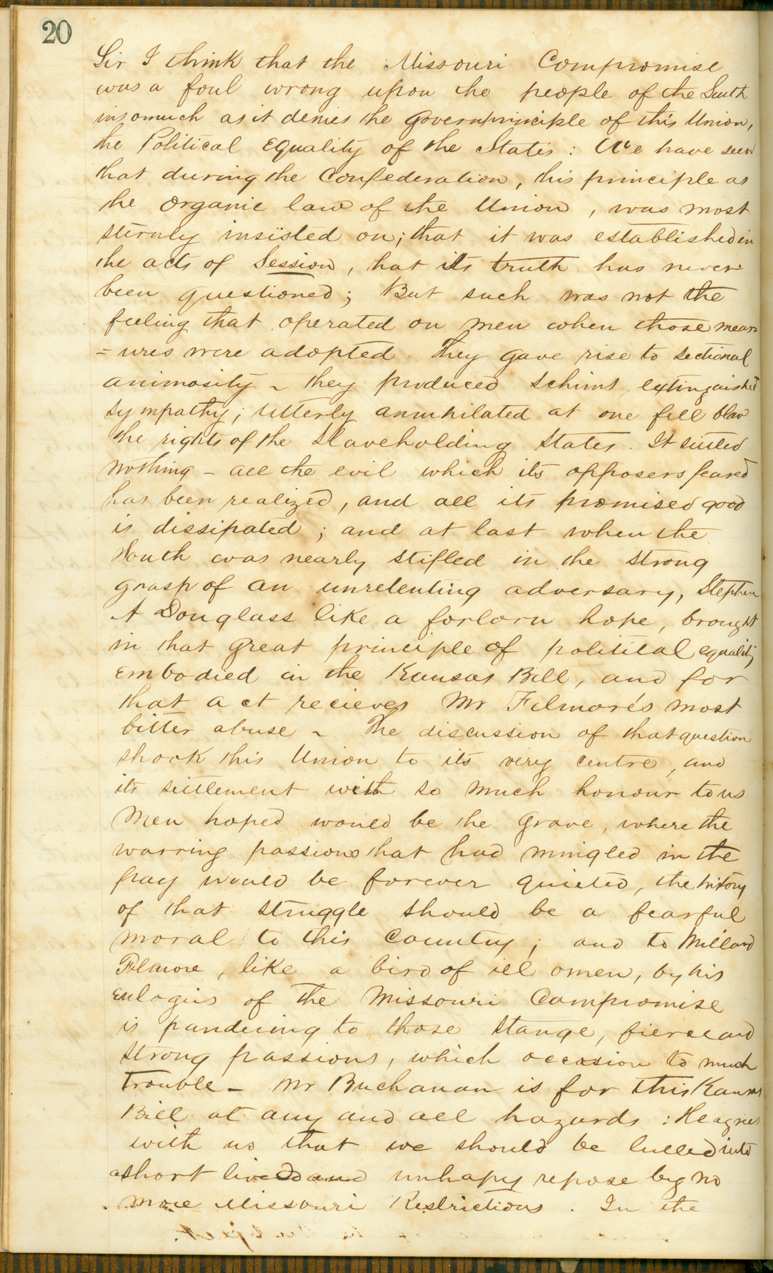 20
Sir I think that the Missouri Compromise
was a foul wrong upon the people of the South
insomuch as it denies the govern principle of this Union,
the Political Equality of the States: We have seen
that during the Confederation, this principle as
the Organic law of the Union, was most
sternly insisted on; that it was established in
the acts of Session, that its truth has never
been questioned; But such was not the
feeling that operated on men when those meas
=ures were adopted. They gave rise to sectional
animosity - they produced schims extinguished
sympathy; utterly annihilated at one fell blow
the rights of the Slaveholding States. It settled
nothing - all the evil which its opposers feared
has been realized, and all its promised good
is dissipated; and at last when the
South was nearly stifled in the strong
grasp of an unrelenting adversary, Stephen
A Douglass like a forlorn hope, brought
in that great principle of political equality
embodied in the Kansas Bill, and for
that act recieves Mr Filmore's most
bitter abuse - The discussion of that question
shook this Union to its very centre, and
its settlement with so much honour to us
Men hoped would be the grave, where the
warring passions that had mingled in the
fray would be forever quieted, the history
of that struggle should be a fearful
moral to this country; and to Millard
Filmore, like a bird of ill omen, by his
eulogies of the Missouri Compromise
is pandering to those stange, fierce and
strong passions, which occasion to much
trouble - Mr Buchanan is for this Kansas
Bill at any and all hazards: He agrees
with us that we should be lulled into
a short lived and unhapy repose by no
more Missouri Restrictions. In the